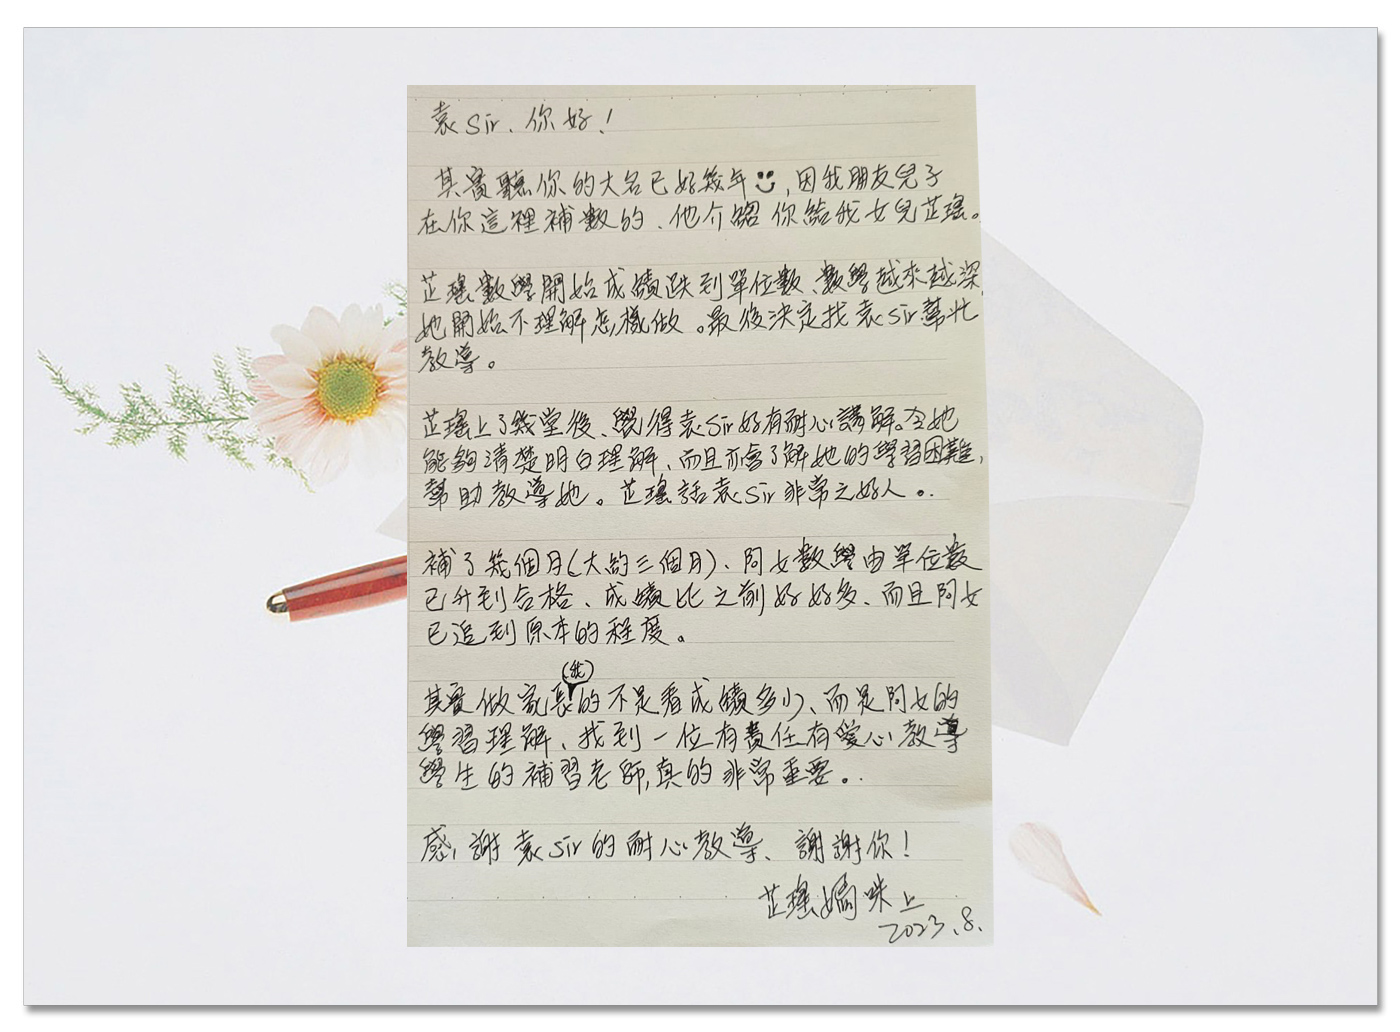 袁Sir、你好！
其實聽你的大名已好幾年，因我朋友兒子
在你這裡補數的、他介紹你給我女兒芷瑤。
芷瑤數學開始成績跌到單位數、數學越來越深，
她開始不理解怎樣做。最後決定找袁Sir幫忙
教導。
芷瑤上了幾堂後、覺得袁Sir好有耐心講解。令她
能夠清楚明白理解、而且亦會了解她的學習困難，
幫助教導她。芷瑤話袁Sir非常之好人。.
補了幾個月(大約三個月)、阿女數學由單位數
已升到合格、成績比之前好好多、而且阿女
已追到原本的程度。
其實做家長(我)的不是看成績多少、而是阿女的
學習理解、找到一位有責任有愛心教導
學生的補習老師,真的非常重要。.
感謝袁Sir的耐心教導、謝謝你！
芷瑤媽咪上
2023.8.